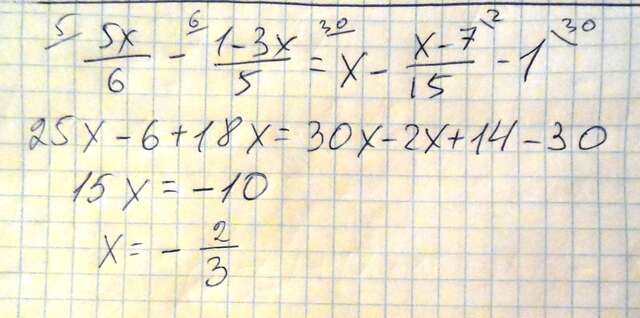 5/ 5x/6 - 6/ (1-3x)/5 = 30/ x - (x-7)/15 \2 - 1 \30
25x - 6 + 18x = 30x - 2x + 14 - 30
15x = -10
x = - 2/3